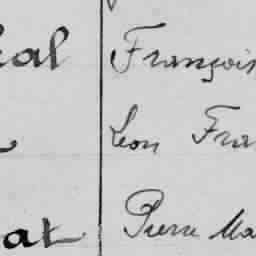 François
Léon Fra
at Pierre Ma